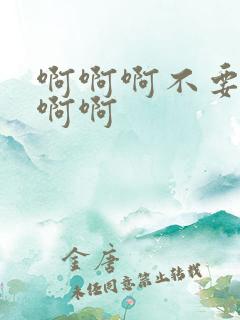 啊啊啊不要
啊啊
金唐
未经同意禁止转载